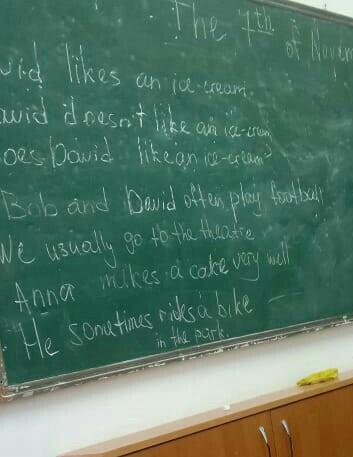 The 7th of Novem
vid likes an ice-cream.
avid doesn't like an ice-cream
oes David like an ice-cream?
Bob and David often play football
We usually go to the theatre
Anna makes a cake very well
He sometimes rides a bike
in the park.